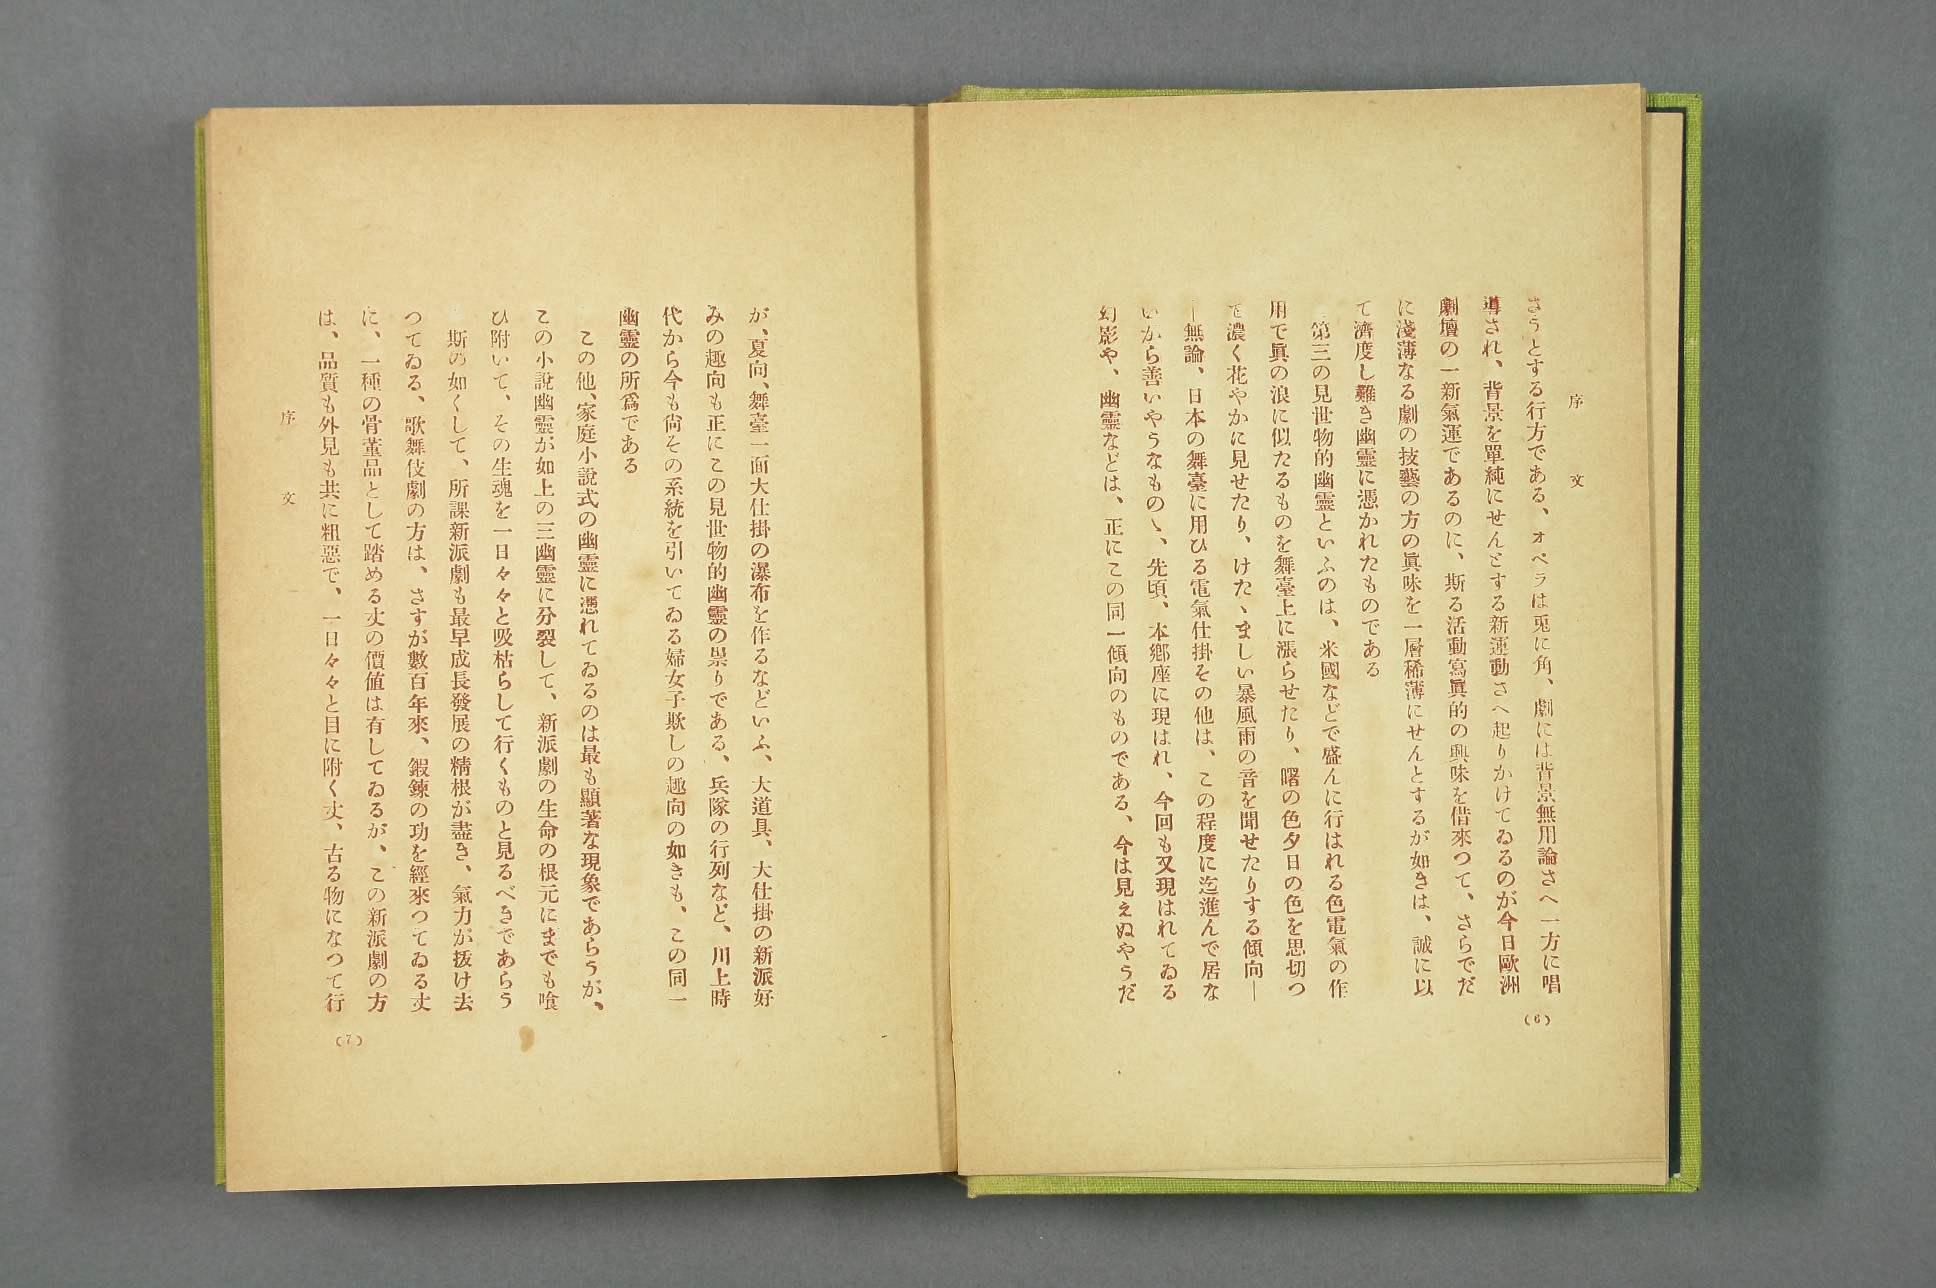 序文
さうとする行方である、オペラは兎に角、劇には背景無用論さへ一方に唱
導され、背景を單純にせんとする新運動さへ起りかけてゐるのが今日歐洲
劇壇の一新氣運であるのに、斯る活動寫眞的の興味を借來つて、さらでだ
に淺薄なる劇の技藝の方の眞味を一層稀薄にせんとするが如きは、誠に以
て濟度し難き幽靈に憑かれたものである
第三の見世物的幽靈といふのは、米國などで盛んに行はれる色電氣の作
用で眞の浪に似たるものを舞臺上に漲らせたり、曙の色夕日の色を思切つ
て濃く花やかに見せたり、けたゝましい暴風雨の音を聞せたりする傾向―
―無論、日本の舞臺に用ひる電氣仕掛その他は、この程度に迄進んで居な
いから善いやうなものゝ、先頃、本郷座に現はれ、今回も又現はれてゐる
幻影や、幽靈などは、正にこの同一傾向のものである、今は見えぬやうだ
(6)
が、夏向、舞臺一面大仕掛の瀑布を作るなどいふ、大道具、大仕掛の新派好
みの趣向も正にこの見世物的幽靈の祟りである、兵隊の行列など、川上時
代から今も尙その系統を引いてゐる婦女子欺しの趣向の如きも、この同一
幽靈の所爲である
この他、家庭小說式の幽靈に憑れてゐるのは最も顯著な現象であらうが、
この小說幽靈が如上の三幽靈に分裂して、新派劇の生命の根元にまでも喰
ひ附いて、その生魂を一日々々と吸枯らして行くものと見るべきであらう
斯の如くして、所謀新派劇も最早成長發展の精根が盡き、氣力が拔け去
つてゐる、歌舞伎劇の方は、さすが數百年來、鍜鍊の功を經來つてゐる丈
に、一種の骨董品として踏める丈の價値は有してゐるが、この新派劇の方
は、品質も外見も共に粗惡で、一日々々と目に附く丈、古る物になつて行
序文
(7)